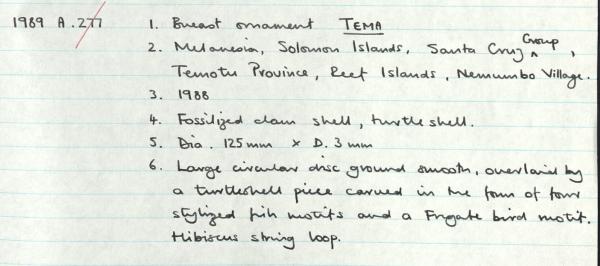 1989 A.277 1. Breast ornament TEMA
2. Melanesia, Solomon Islands, Santa Cruz Group,
Temotu Province, Reef Islands, Nemumbo Village.
3. 1988
4. Fossilized clam shell, turtle shell.
5. Dia. 125 mm x D. 3 mm
6. Large circular disc ground smooth, overlaid by
a turtleshell piece carved in the form of four
stylized fish motifs and a Frigate bird motif.
Hibiscus string loop.